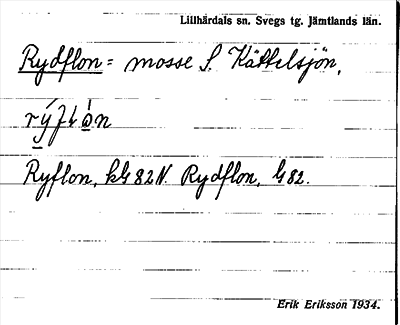 Lillhärdals sn. Svegs tg. Jämtlands län.
Rydflon = mosse S. Kättelsjön,
Ryflon, kG 82 N. Rydflon, G 82.
Erik Eriksson 1934.